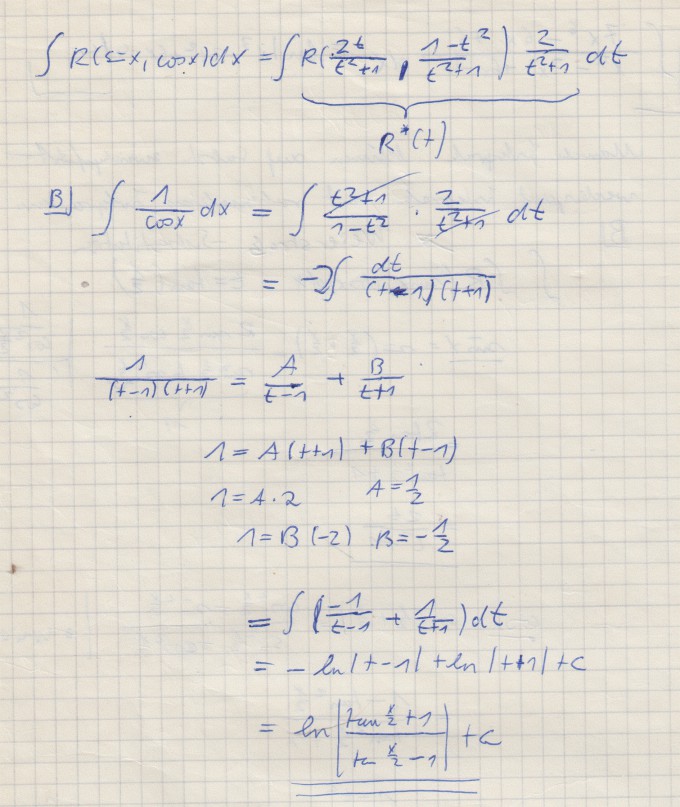 ∫ R(sin x, cos x) dx = ∫ R( 2t/(t²+1) , (1-t²)/(t²+1) ) 2/(t²+1) dt
R*(t)
B) ∫ 1/cos x dx = ∫ (t²+1)/(1-t²) · 2/(t²+1) dt
= -2∫ dt/((t-1)(t+1))
1/((t-1)(t+1)) = A/(t-1) + B/(t+1)
1 = A(t+1) + B(t-1)
1 = A·2 A = 1/2
1 = B(-2) B = -1/2
= ∫ ( -1/(t-1) + 1/(t+1) ) dt
= - ln|t-1| + ln|t+1| + c
= ln| (tan x/2 + 1)/(tan x/2 - 1) | + c